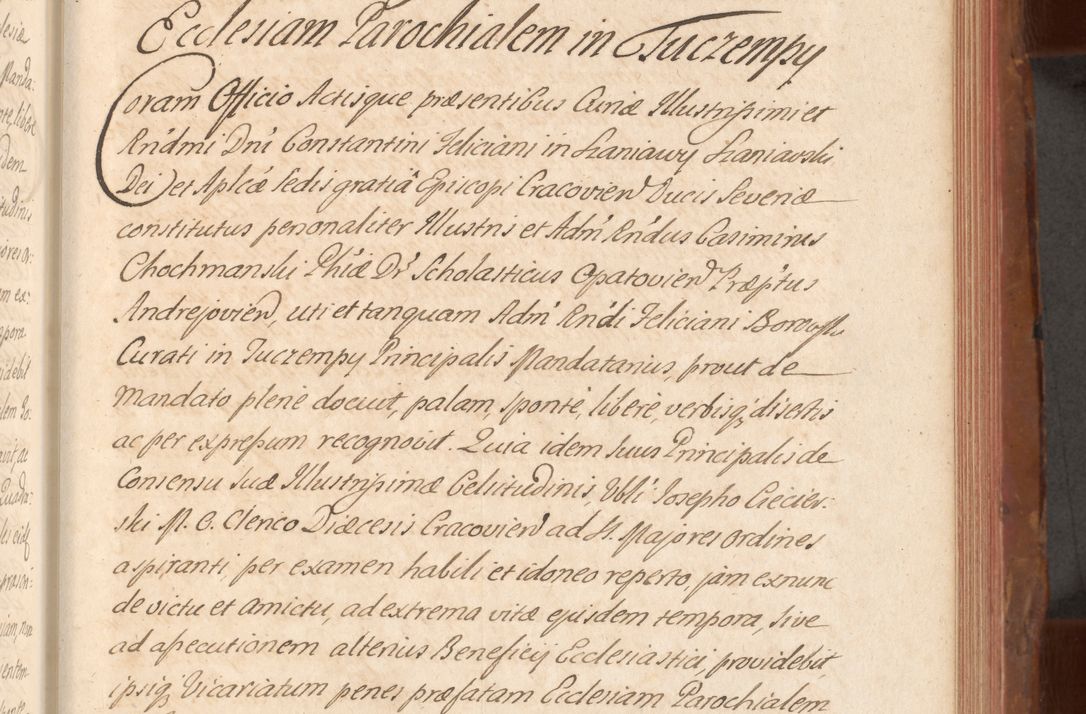 Ecclesiam Parochialem in Tuczempy
Coram Officio Actisque præsentibus Curiæ Illustrissimi et
Rńdmi Dnı́ Constantini Feliciani in Szaniawy Szaniawski
Dei et Aplicæ Sedis gratiâ Episcopi Cracovien Ducis Severiæ
constitutus personaliter Illustris et Admˊ Rńdus Casimirus
Chochmanski Phiæ Dr Scholasticus Opatovien Præpˊtus
Andrejovien, uti et tanquam Admˊ Rńdi Feliciani Borowski
Curati in Tuczempy Principalis Mandatarius, prout de
mandato plene docuit, palam, sponte, libere, verbisq; disertis
ac per expressum recognovit. Quia idem suus Principalis de
Consensu suæ Illustrissimæ Celsitudinis, Vbli Josepho Ciecier-
ski M. O. Clerico Diæcesis Cracovien ad S. Majores Ordines
aspiranti per examen habili et idoneo reperto, jam exnunc
de victu et amictu, ad extrema vitæ ejusdem tempora, sive
ad assecutionem alterius Beneficij Ecclesiastici providebit,
ipsiq; Vicariatum penes præfatam Ecclesiam Parochialem